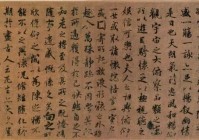 盛一觴一詠亦足以暢敘幽情
是日也天朗氣清惠風和暢仰
觀宇宙之大俯察品類之盛
所以遊目騁懷足以極視聽之
娛信可樂也夫人之相與俯仰
一世或取諸懷抱悟言一室之內
或因寄所託放浪形骸之外雖
趣舍萬殊靜躁不同當其欣
於所遇暫得於己怏然自足不
知老之將至及其所之既倦情
隨事遷感慨係之矣向之所
欣俛仰之間以為陳迹猶不
能不以之興懷況脩短隨化終
期於盡古人云死生亦大矣豈